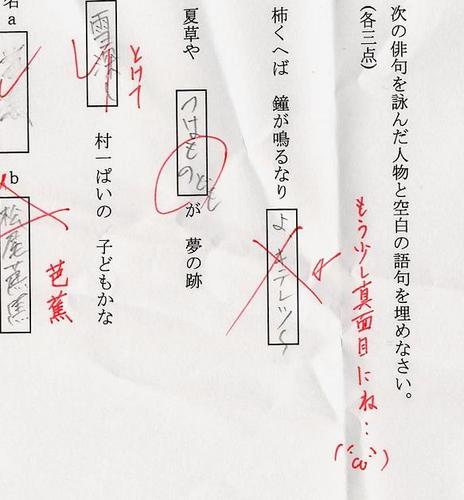 次の俳句を詠んだ人物と空白の語句を埋めなさい。
(各三点)
もう少し真面目にね…
柿くへば 鐘が鳴るなり よキテレツくん
夏草や つはものども が 夢の跡
とけて
村一ぱいの 子どもかな
a
b 松尾芭蕉
芭蕉